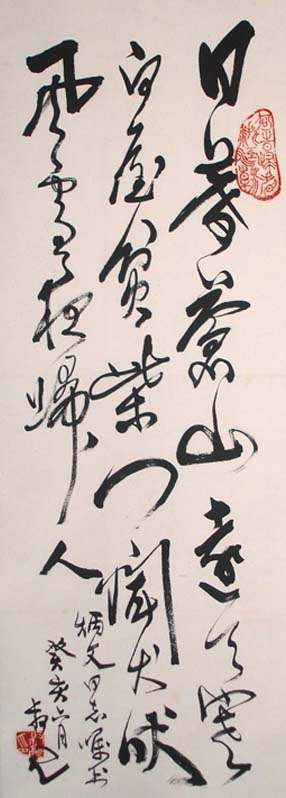 日暮蒼山遠天寒
白屋貧柴門聞犬吠
風雪夜歸人
炳文同志嘱书
癸亥六月